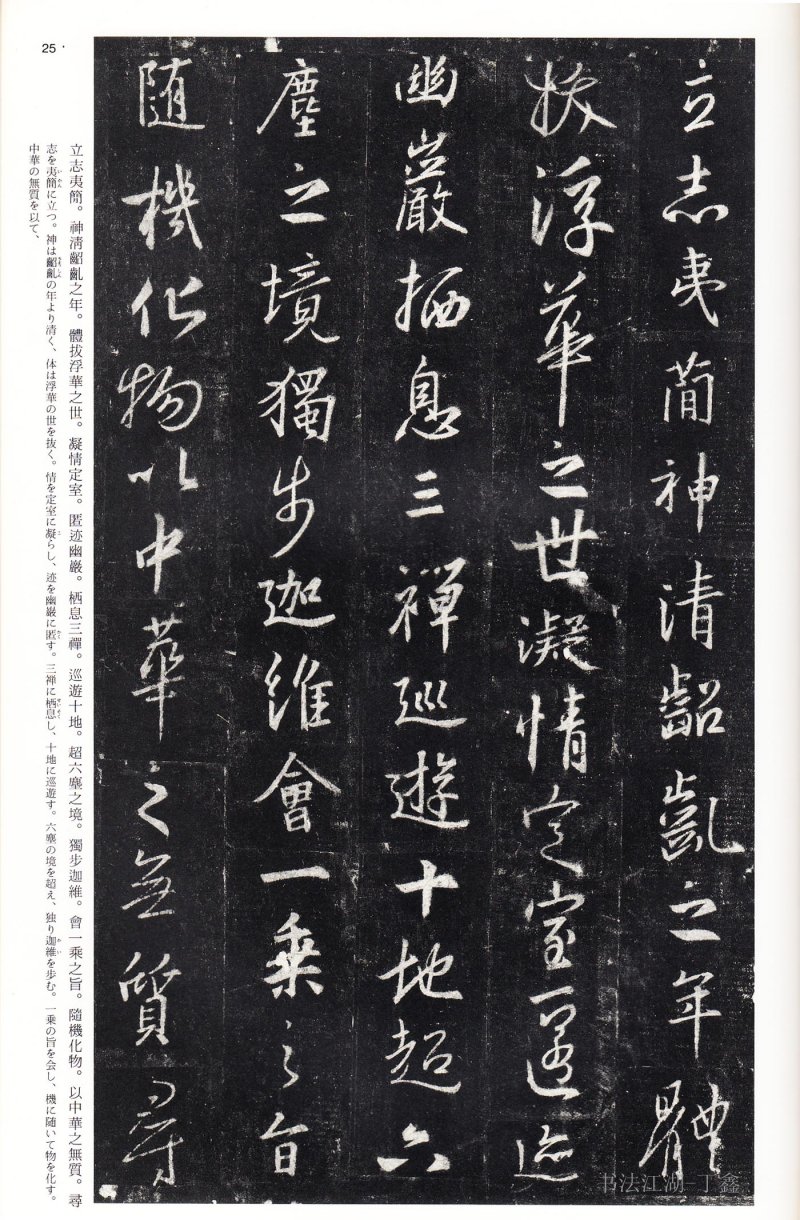 25
立志夷簡神清齠齔之年體
拔浮華之世凝情定室匿迹
幽巖栖息三禪巡遊十地超六
塵之境獨步迦維會一乘之旨
随機化物以中華之無質尋
立志夷簡。神清齠齔之年。體拔浮華之世。凝情定室。匿迹幽巖。栖息三禪。巡遊十地。超六塵之境。獨步迦維。會一乘之旨。隨機化物。以中華之無質。尋
志を夷簡に立つ。神は齠齔の年より清く、体は浮華の世を抜く。情を定室に凝らし、迹を幽巌に匿す。三禅に栖息し、十地に巡遊す。六塵の境を超え、独り迦維を歩む。一乗の旨を会し、機に随いて物を化す。
中華の無質を以て、
书法江湖-丁鑫